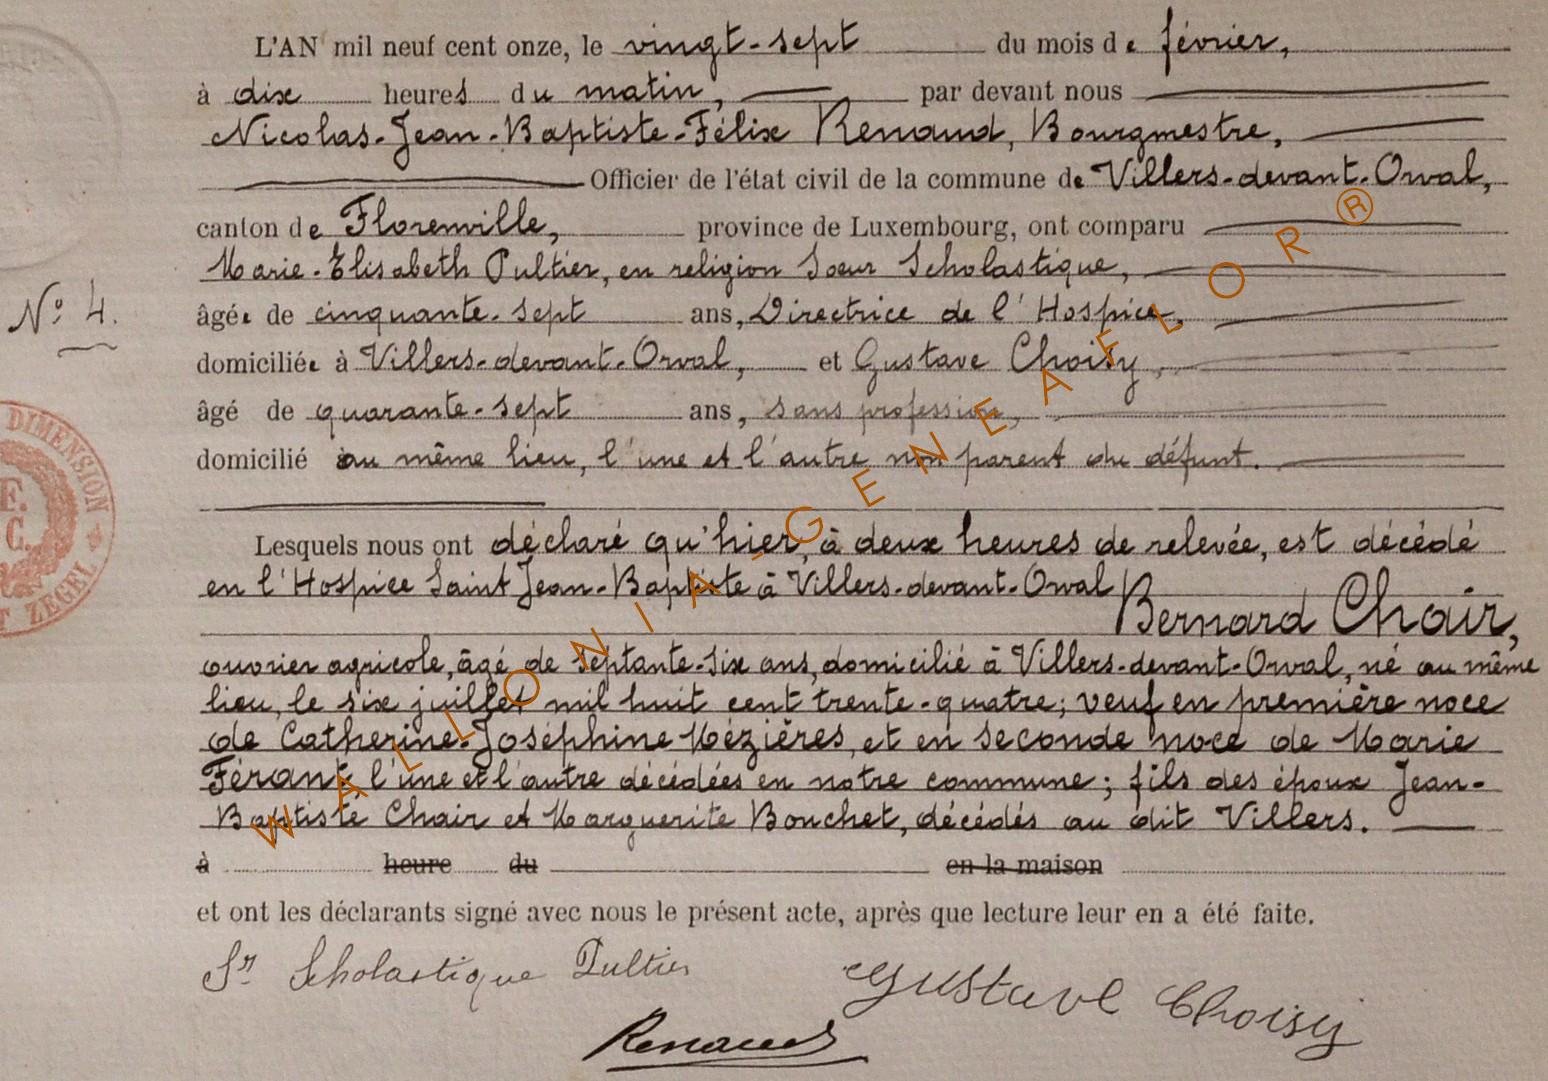 L'AN mil neuf cent onze, le vingt-sept du mois de février,
à dix heures du matin, par devant nous
Nicolas-Jean-Baptiste-Félix Renaud, Bourgmestre,
Officier de l'état civil de la commune de Villers-devant-Orval,
canton de Florenville, province de Luxembourg, ont comparu
Marie-Elisabeth Pultier, en religion Soeur Scholastique,
N° 4.
âgée de cinquante-sept ans, Directrice de l'Hospice,
domiciliée à Villers-devant-Orval, et Gustave Choisy,
âgé de quarante-sept ans, sans profession,
domicilié au même lieu, l'une et l'autre non parent du défunt.
Lesquels nous ont déclaré qu'hier, à deux heures de relevée, est décédé
en l'Hospice Saint Jean-Baptiste à Villers-devant-Orval
Bernard Chair,
ouvrier agricole, âgé de septante-six ans, domicilié à Villers-devant-Orval, né au même
lieu, le six juillet mil huit cent trente-quatre; veuf en première noce
de Catherine-Joséphine Mézières, et en seconde noce de Marie
Férant, l'une et l'autre décédées en notre commune; fils des époux Jean-
Baptiste Chair et Marguerite Bouchet, décédés au dit Villers.
à heure du en la maison
et ont les déclarants signé avec nous le présent acte, après que lecture leur en a été faite.
Sr Scholastique Pultier
Gustave Choisy
Renaud
DIMENSION
E.
C.
T ZEGEL
WALLONIA-GENEAFLOR®